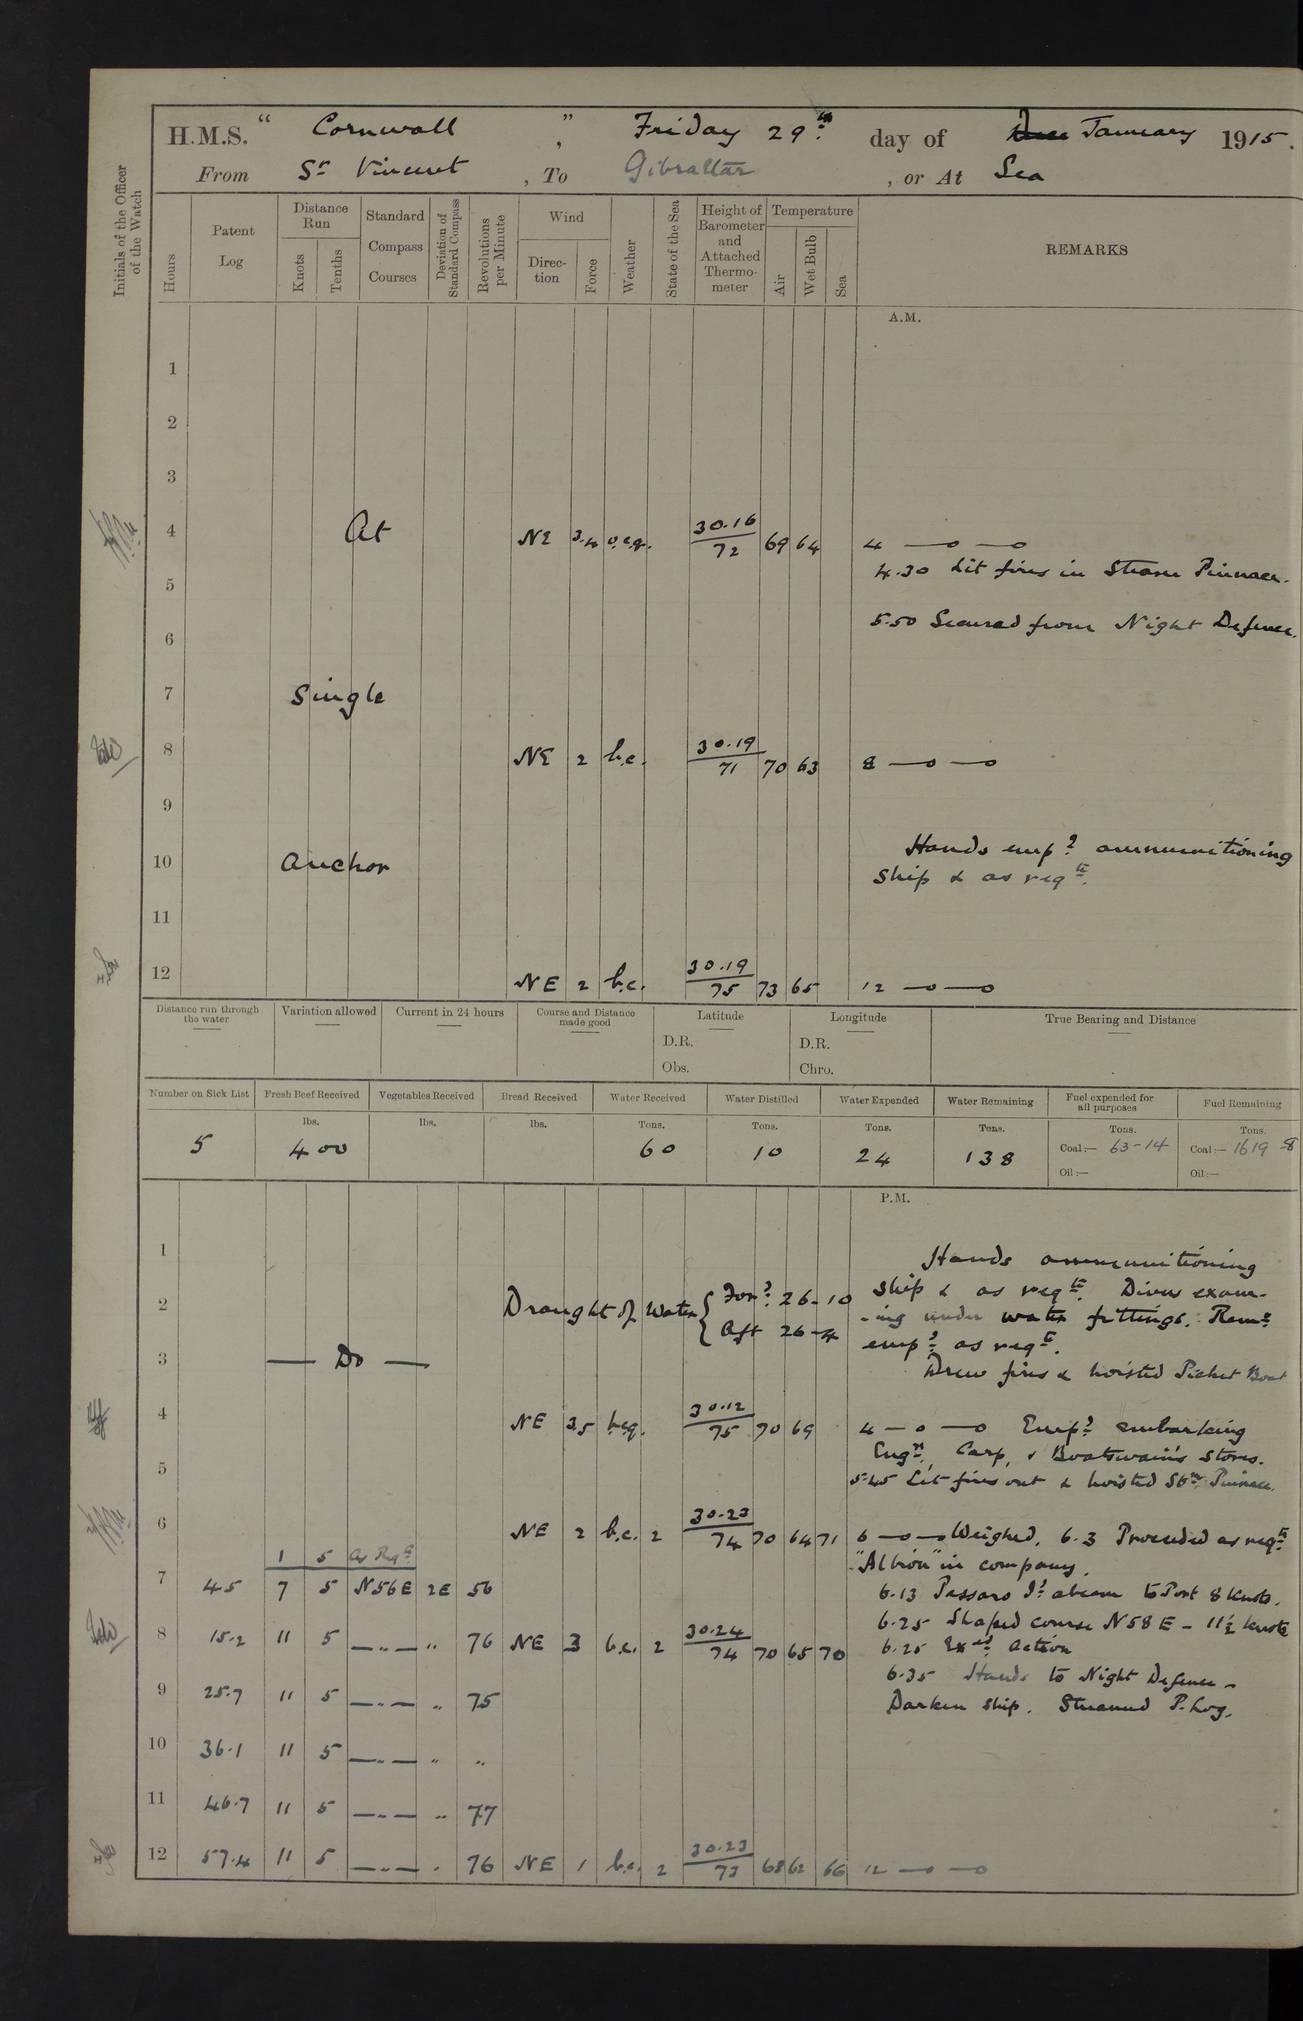 H.M.S. " Cornwall ", Friday 29th day of January 1915.
From St Vincent, To Gibraltar, or At Sea
Initials of the Officer of the Watch
Hours
Patent Log
Distance Run
Knots
Tenths
Standard Compass Courses
Deviation of Standard Compass
Revolutions per Minute
Wind
Direction
Force
Weather
State of the Sea
Height of Barometer and Attached Thermometer
Temperature
Air
Wet Bulb
Sea
REMARKS
A.M.
1
2
3
4 At NE 3.4 o.c.q. 30.16 / 72 69 64 4 —o —o
4.30 Lit fires in Steam Pinnace.
5
5.50 Secured from Night Defence.
6
7 Single
8 NE 2 b.c. 30.19 / 71 70 63 8 —o —o
9
Hands empd ammunitioning
10 Anchor ship & as reqte.
11
12 NE 2 b.c. 30.19 / 75 73 65 12 —o —o
Distance run through the water
Variation allowed
Current in 24 hours
Course and Distance made good
Latitude
D.R.
Obs.
Longitude
D.R.
Chro.
True Bearing and Distance
Number on Sick List
Fresh Beef Received
Vegetables Received
Bread Received
Water Received
Water Distilled
Water Expended
Water Remaining
Fuel expended for all purposes
Fuel Remaining
lbs. lbs. lbs. Tons. Tons. Tons. Tons. Tons. Tons.
5 400 60 10 24 138 Coal:— 63-14 Coal:— 1619 8
Oil:— Oil:—
P.M.
1 Hands ammunitioning
2 Draught of Water { Ford. 26-10 ship & as reqte. Divers exam-
Aft 26-4 -ing under water fittings. Remr
3 — Do — empd as reqte.
Drew fires & hoisted Picket Boat
4 NE 3.5 b.c.q. 30.12 / 75 70 69 4 —o —o Empd embarking
Engn, Carp, & Boatswain's Stores.
5 5.45 Let fires out & hoisted Stm Pinnace.
6 NE 2 b.c. 2 30.23 / 74 70 64 71 6 —o —o Weighed. 6.3 Proceeded as reqte
1 5 As Reqte "Albion" in company.
7 4.5 7 5 N56E 2E 56 6.13 Passaro Id abeam to Port 8 knots.
6.25 Shaped course N58E - 11½ knots
8 15.2 11 5 —..— " 76 NE 3 b.c. 2 30.24 / 74 70 65 70 6.25 Exd Action
6.35 Hands to Night Defence -
9 25.7 11 5 —..— " 75 Darken ship. Streamed P. Log.
10 36.1 11 5 —..— " "
11 46.7 11 5 —..— " 77
12 57.4 11 5 —..— " 76 NE 1 b.c. 2 30.23 / 73 68 62 66 12 —o —o